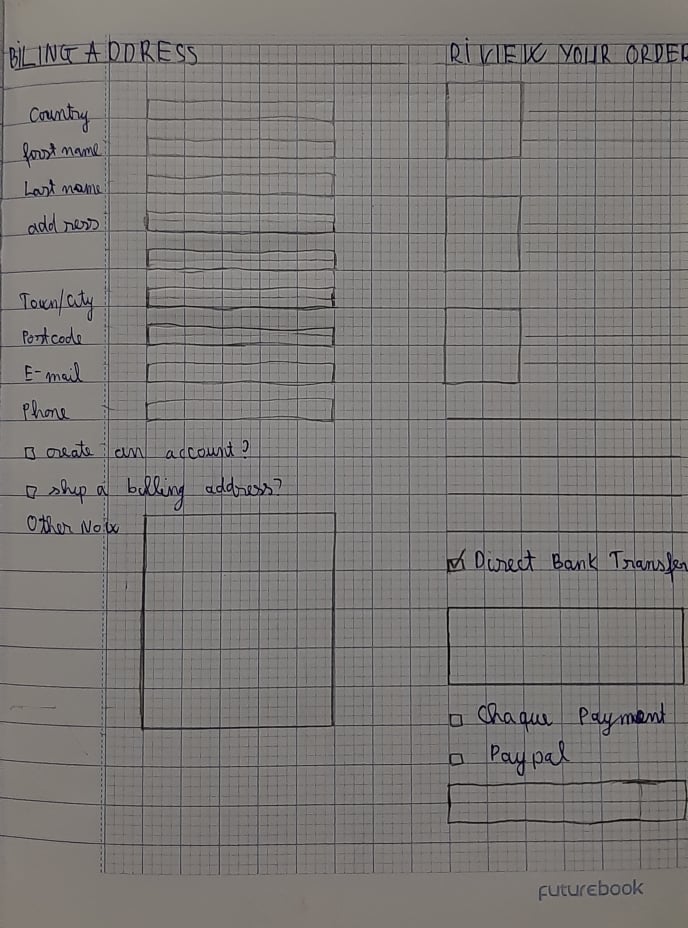 BILING ADDRESS
Country
first name
Last name
address
Town/City
Postcode
E-mail
Phone
create an account?
ship a billing address?
Other Note
RIVIEW YOUR ORDER
Direct Bank Transfer
Chaque Payment
Paypal
futurebook